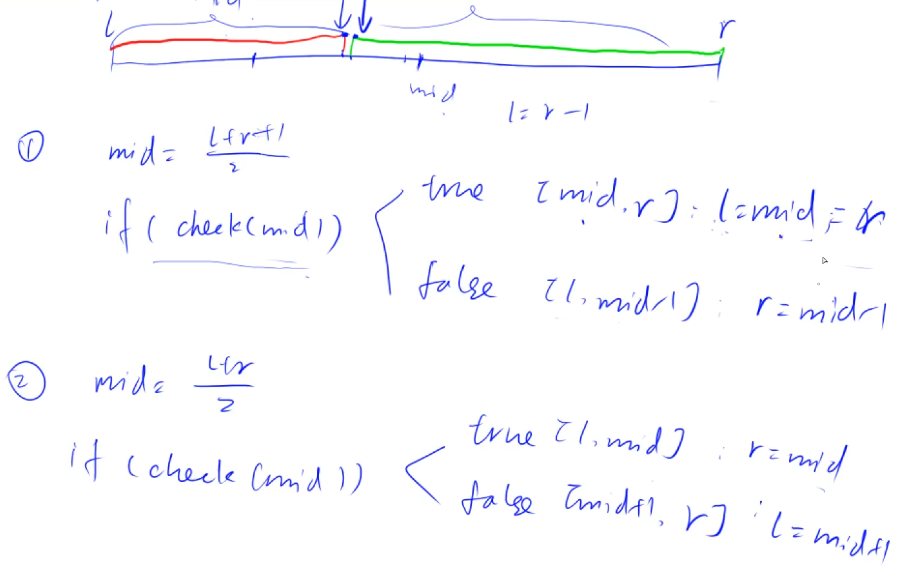 l r
mid
l = r - 1
① mid = l+r+1 / 2
if ( check(mid) ) true [mid, r] : l = mid = r
false [l, mid-1] : r = mid-1
② mid = l+r / 2
if (check (mid)) true [l, mid] : r = mid
false [mid+1, r] : l = mid+1